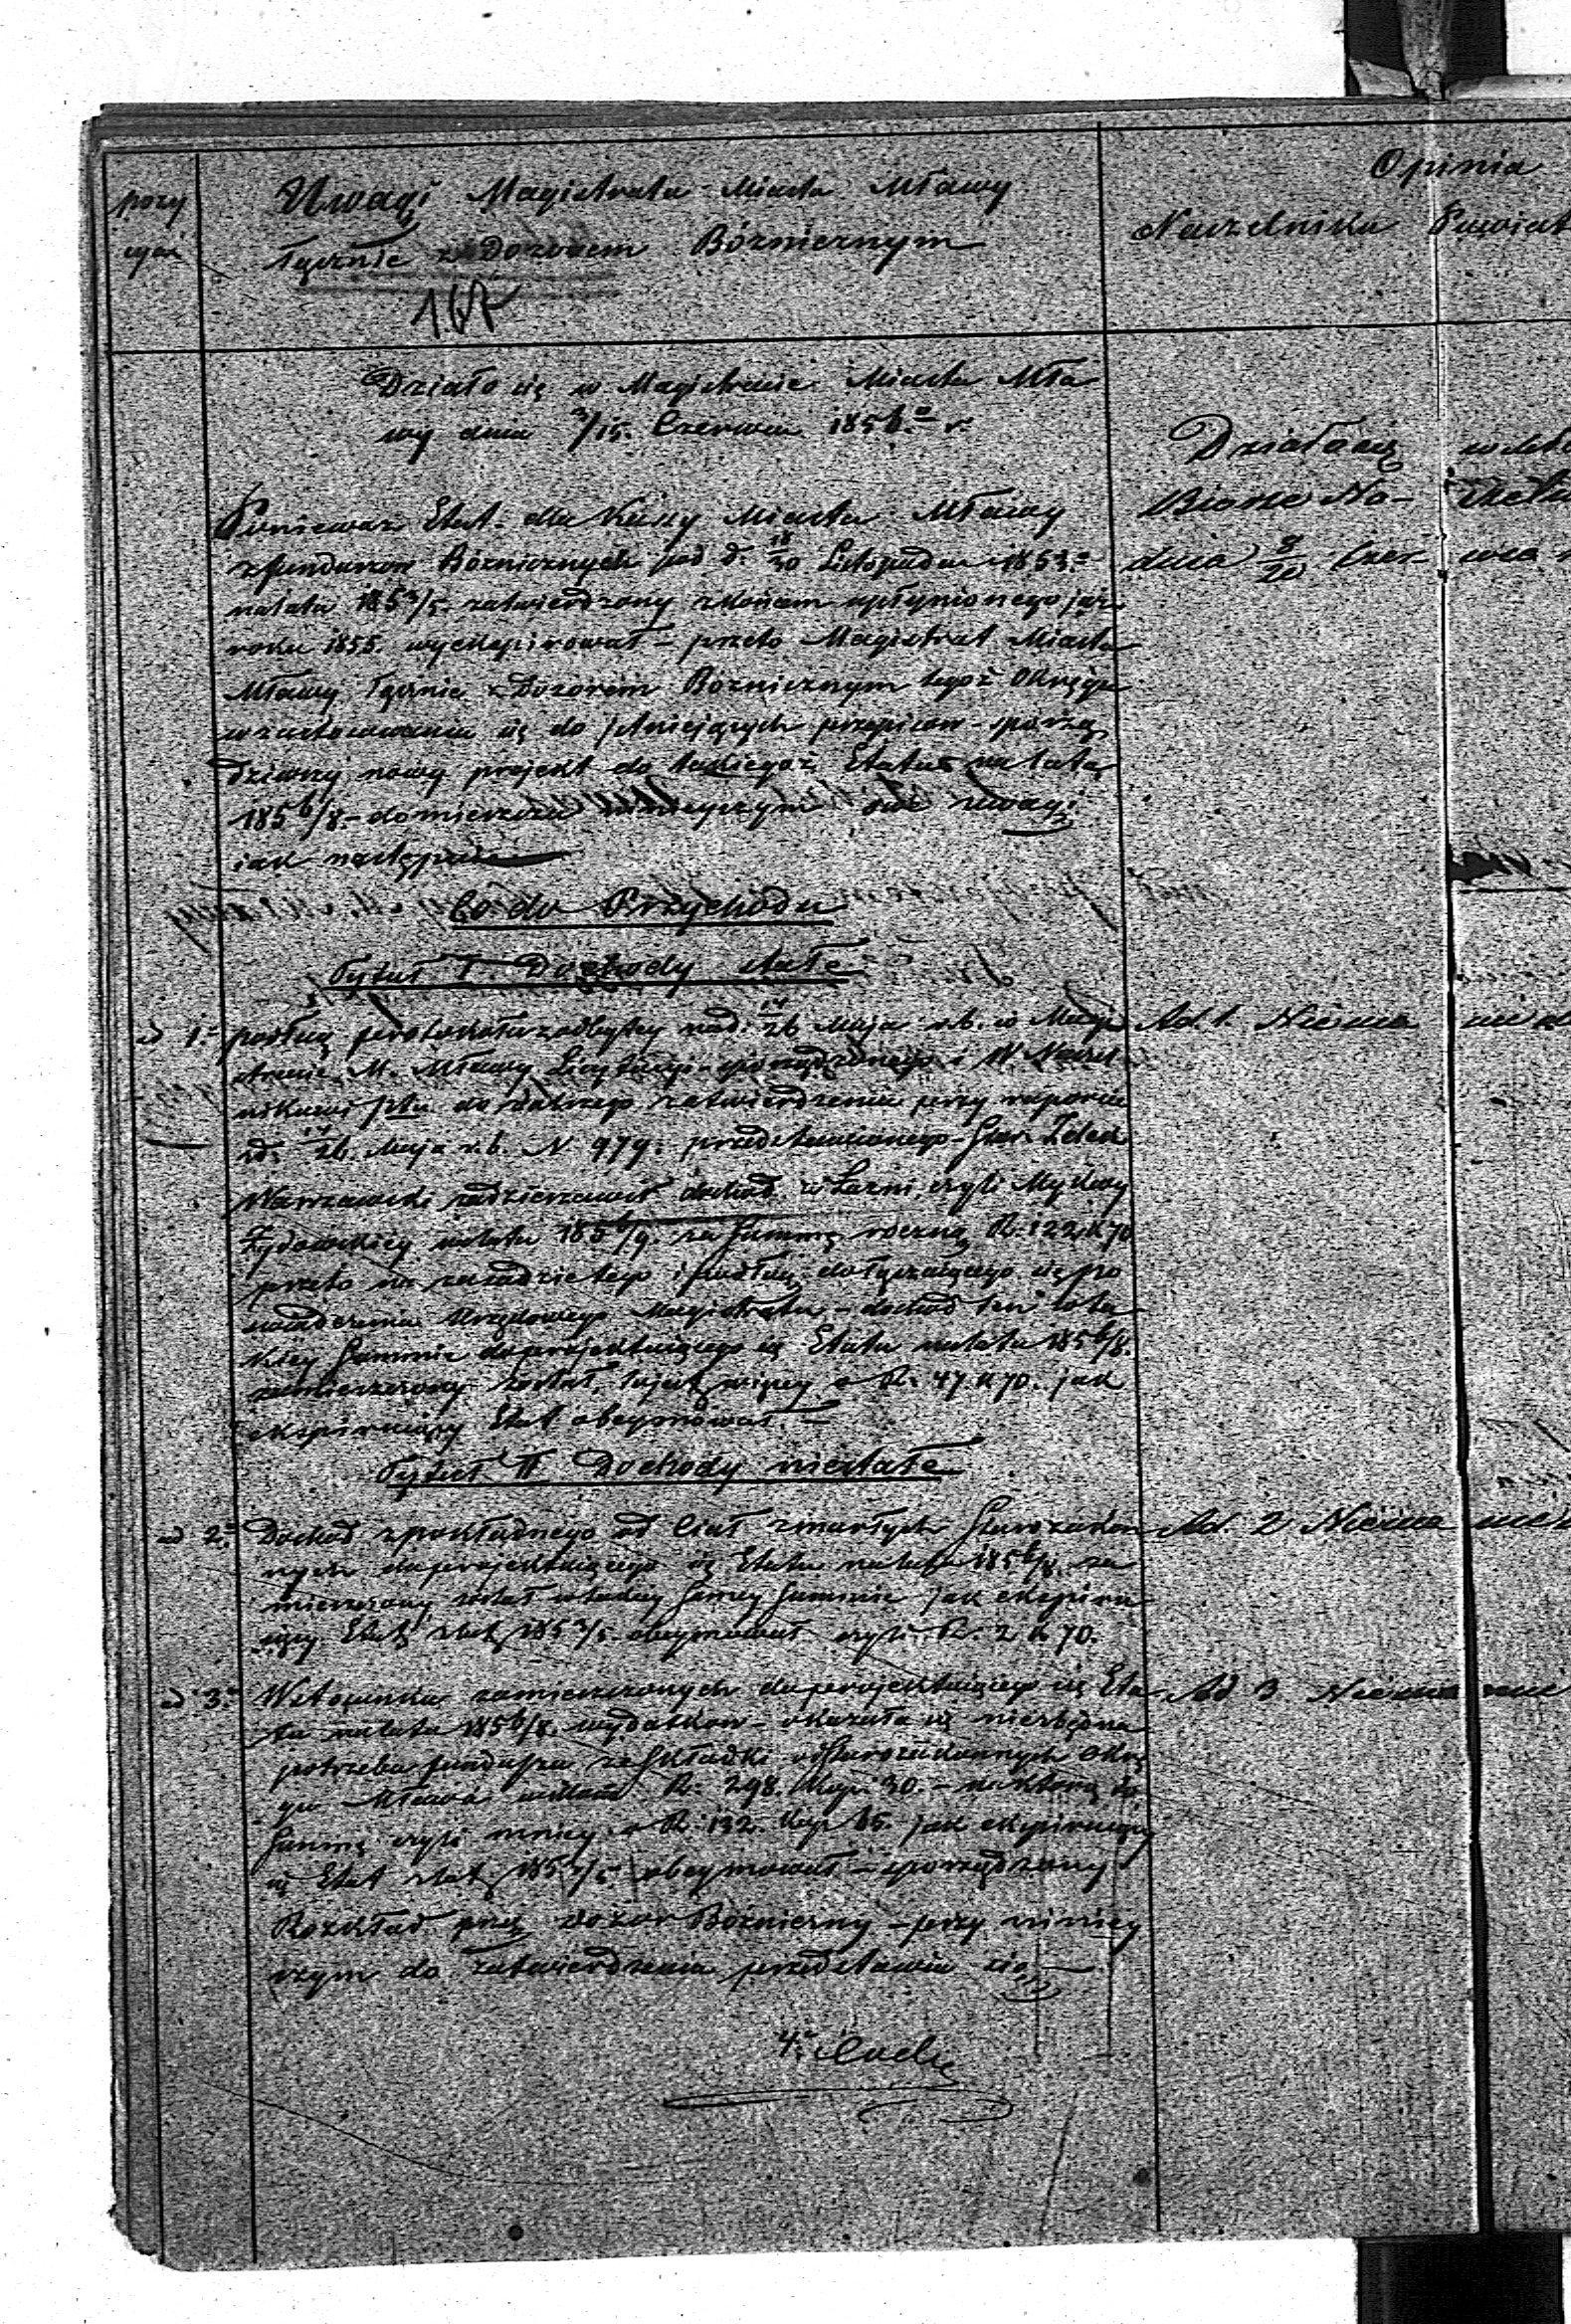 pozy
cyai
Uwagi Magistratu Miasta Mławy
łącznie z Dozorem Bóżnicznym
167
Opinia
Naczelnika Powiat
Działo się w Magistracie Miasta Mła
wy dnia 3/15. Czerwca 1856.º r.
Działo się
Biorze Na-
dnia 8/20 Czer- wca
Ponieważ Etat dla Kassy Miasta Mławy
z funduszów Bóżnicznych pod d. 18/30 Listopada 1853.º
na lata 1853/5. zatwierdzony z końcem upłynionego już
roku 1855. wyekspirował – przeto Magistrat Miasta
Mławy łącznie z Dozorem Bóżnicznym tegoż Okręgu
w zastosowaniu się do istniejących przepisów – sporzą
dziwszy nowy projekt do takiegoż Etatu na lata
1856/8. – domieszcza swe uwagi
jak następuie
Co do Przychodu
Tytuł I. Dochody stałe
ad 1.º podług protokołu z odbytey nad. 14/26 Maja r.b. w Magi
stracie M. Mławy Licytacyi sporządzonego i W. Naczel
nikowi Ptu do dalszego zatwierdzenia przy raporcie
z d. 14/26. Maja r.b. N. 979. przedstawionego – Star. Zelek
Warszawski zadzierżawił dochód z Łazni czyli Mykwy
Żydowskiey na lata 1856/9. za Summę roczną R. 122 k 70
przeto na zasadzie tego i podług dołączaiącego się po
świadczenia Urzędowego Magistratu – dochód ten w ta
kiey Summie do projektuiącego się Etatu na lata 1856/8.
zamieszczony został, to jest więcey o R. 47. k 70. jak
ekspiruiący Etat obeymował –
Tytuł II Dochody niestałe
ad 2.º Dochód z pokładnego od Ciał zmarłych Starozakon
nych do projektuiącego się Etatu na lata 1856/8. za
mieszczony został w takiey samey Summie jak ekspiru
iący Etat z lat 1853/5. obeymował czyli R. 2 k 70.
ad 3.º W stosunku zamieszczonych do projektuiącego się Eta
tu na lata 1856/8. wydatków – okazała się niezbędna
potrzeba funduszu ze Składki od Starozakonnych Okrę
gu Mława R. 298. kop. 30. – na którą to
Summę czyli mniey o R. 132. kop 65. jak ekspiruiący
się Etat z lat 1853/5 obeymował – sporządzony
Rozkład przez Dozór Bóżniczny – przy niniey
szym do Zatwierdzenia przedstawia się. –
Ad. 1. Niema
Ad. 2 Niema
Ad 3 Niema